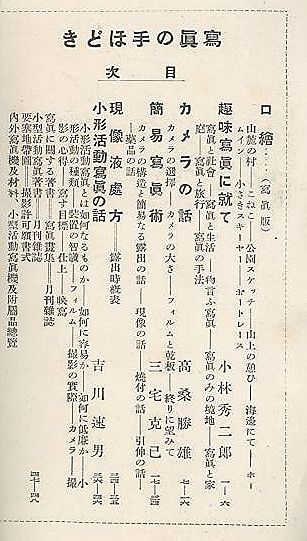 寫眞の手ほどき
目次
口繪……(寫眞版)
山麓の村——きこり——公園スケッチ——山上の憩ひ——海邊にて——ホー
ム・シーン——小さきスキーヤー——ポートレース
趣味寫眞に就て 小林秀二郎 一—六
寫眞と社會——寫眞と生活——物言ふ寫眞——寫眞のみの境地——寫眞と家
庭——寫眞と旅行——寫眞の手法
カメラの話 高桑勝雄 七—一六
カメラの選擇——カメラの大さ——フィルムと乾板——終りに望みて
簡易寫眞術 三宅克己
カメラの構造と簡易なる露出の話——現像の話——燒付の話——引伸の話
——藥品の話
現像液處方——露出時縮表
小形活動寫眞の話 吉川速男
小形活動寫眞とは如何なるものか——如何に容易か——如何に低廉か——小
形活動の種類——裝置の智識——フィルム——撮影の實際——カメラ——撮
影の心得——寫す目標——仕上——映寫
寫眞に關する著書——寫眞畫集——月刊雜誌
小型活動寫眞著書——月刊雜誌
要塞地帶圖——撮影許可願書式
內外寫眞機及材料 小型活動寫眞機及附屬品總覽 四七—四八